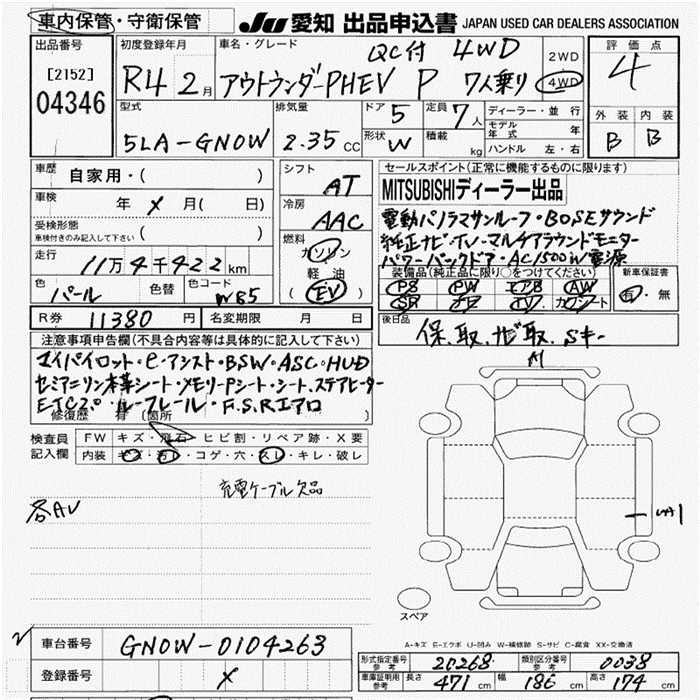 車内保管・守衛保管
JU 愛知 出品申込書 JAPAN USED CAR DEALERS ASSOCIATION
出品番号
[2152]
04346
初度登録年月
R4 2月
車名・グレード
QC付 4WD
アウトランダーPHEV P 7人乗り
2WD
4WD
評価点
4
外装 内装
B B
型式
5LA-GN0W
排気量
2.35 CC
ドア 5
形状 W
定員 7人
積載 kg
ディーラー・並行
モデル年式 年
ハンドル 左・右
車歴
自家用・( )
車検
年 X 月( 日)
受検形態
(車検付きのみ記入して下さい )
走行
11万4千422km
色
パール
色替
色コード
W85
シフト
AT
冷房
AAC
燃料
ガソリン
軽油
(EV)
セールスポイント(正常に機能するものに限ります)
MITSUBISHIディーラー出品
電動パノラマサンルーフ・BOSEサウンド
純正ナビ・TV・マルチアラウンドモニター
パワーバックドア・AC1500W電源
装備品(純正品に限り○をつけてください)
PS PW エアB AW
SR ナビ TV カワシート
新車保証書
有・無
R券 11380 円
名変期限 月 日
後日品
保、取、ナビ取、Sキー
注意事項申告欄(不具合内容等は具体的に記入して下さい)
マイパイロット・e-アシスト・BSW・ASC・HUD
セミアニリン本革シート・メモリーPシート・シート、ステアヒーター
ETC2.0・ルーフレール・F.S.Rエアロ
修復歴 有 (箇所 )
検査員記入欄
FW キズ・飛石・ヒビ割・リペア跡・X要
内装 キズ・汚れ・コゲ・穴・スレ・キレ・破レ
充電ケーブル欠品
各AU
A1
UA1
スペア
A-キズ E-エクボ U-凹み W-補修跡 S-サビ C-腐食 XX-交換済
車台番号 GN0W-0104263
登録番号 X
形式指定番号 参考 20268
類別区分番号 参考 0038
車庫証明用 参考 長さ 471 cm 幅 186 cm 高さ 174 cm